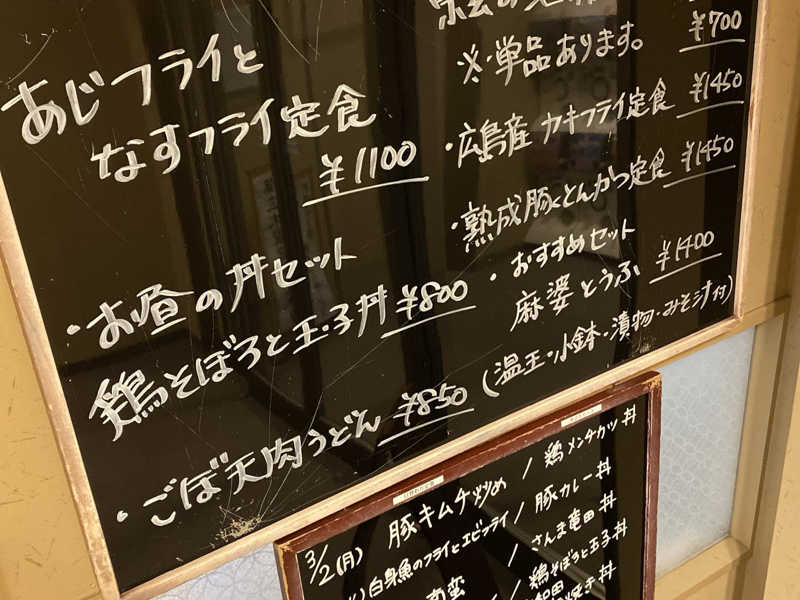 あじフライと
なすフライ定食
¥1100
・お昼の丼セット
鶏そぼろと玉子丼 ¥800
・ごぼ天肉うどん ¥850
※単品あります。
¥700
・広島産 カキフライ定食 ¥1450
・熟成豚とんかつ定食 ¥1450
・おすすめセット
麻婆とうふ ¥1400
(温玉・小鉢・漬物・みそ汁付)
3/2(月) 豚キムチ炒め / 鶏メンチカツ丼
白身魚のフライとエビフライ / 豚カレー丼
南蛮 / さんま竜田丼
鶏そぼろと玉子丼